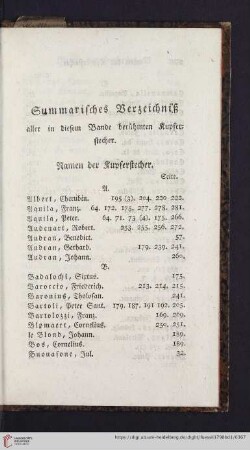 Summarisches Verzeichniß
aller in diesem Bande berühmten Kupfer-
stecher.
Namen der Kupferstecher.
Seite.
A.
Albert, Cherubin. 195 (3). 204. 220. 222.
Aquila, Franz. 64. 172. 175. 277. 278. 281.
Aquila, Peter. 64. 71. 73 (4). 175. 266.
Audenart, Robert. 253. 255. 256. 272.
Audran, Benedict. 57.
Audran, Gerhard. 179. 239. 241.
Audran, Johann. 260.
B.
Badalochi, Sixtus. 175.
Baroccio, Friederich. 223. 224. 215.
Baronius, Tholosan. 241.
Bartoli, Peter Sant. 179. 187. 191. 192. 205.
Bartolozzi, Franz. 169. 209.
Blomaert, Cornelius. 230. 251.
le Blond, Johann. 189.
Bos, Cornelius. 189.
Buonasone, Jul. 32.